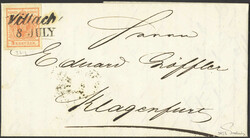 Villach
8 JULY
Herrn
Eduard Löffler
Klagenfurt